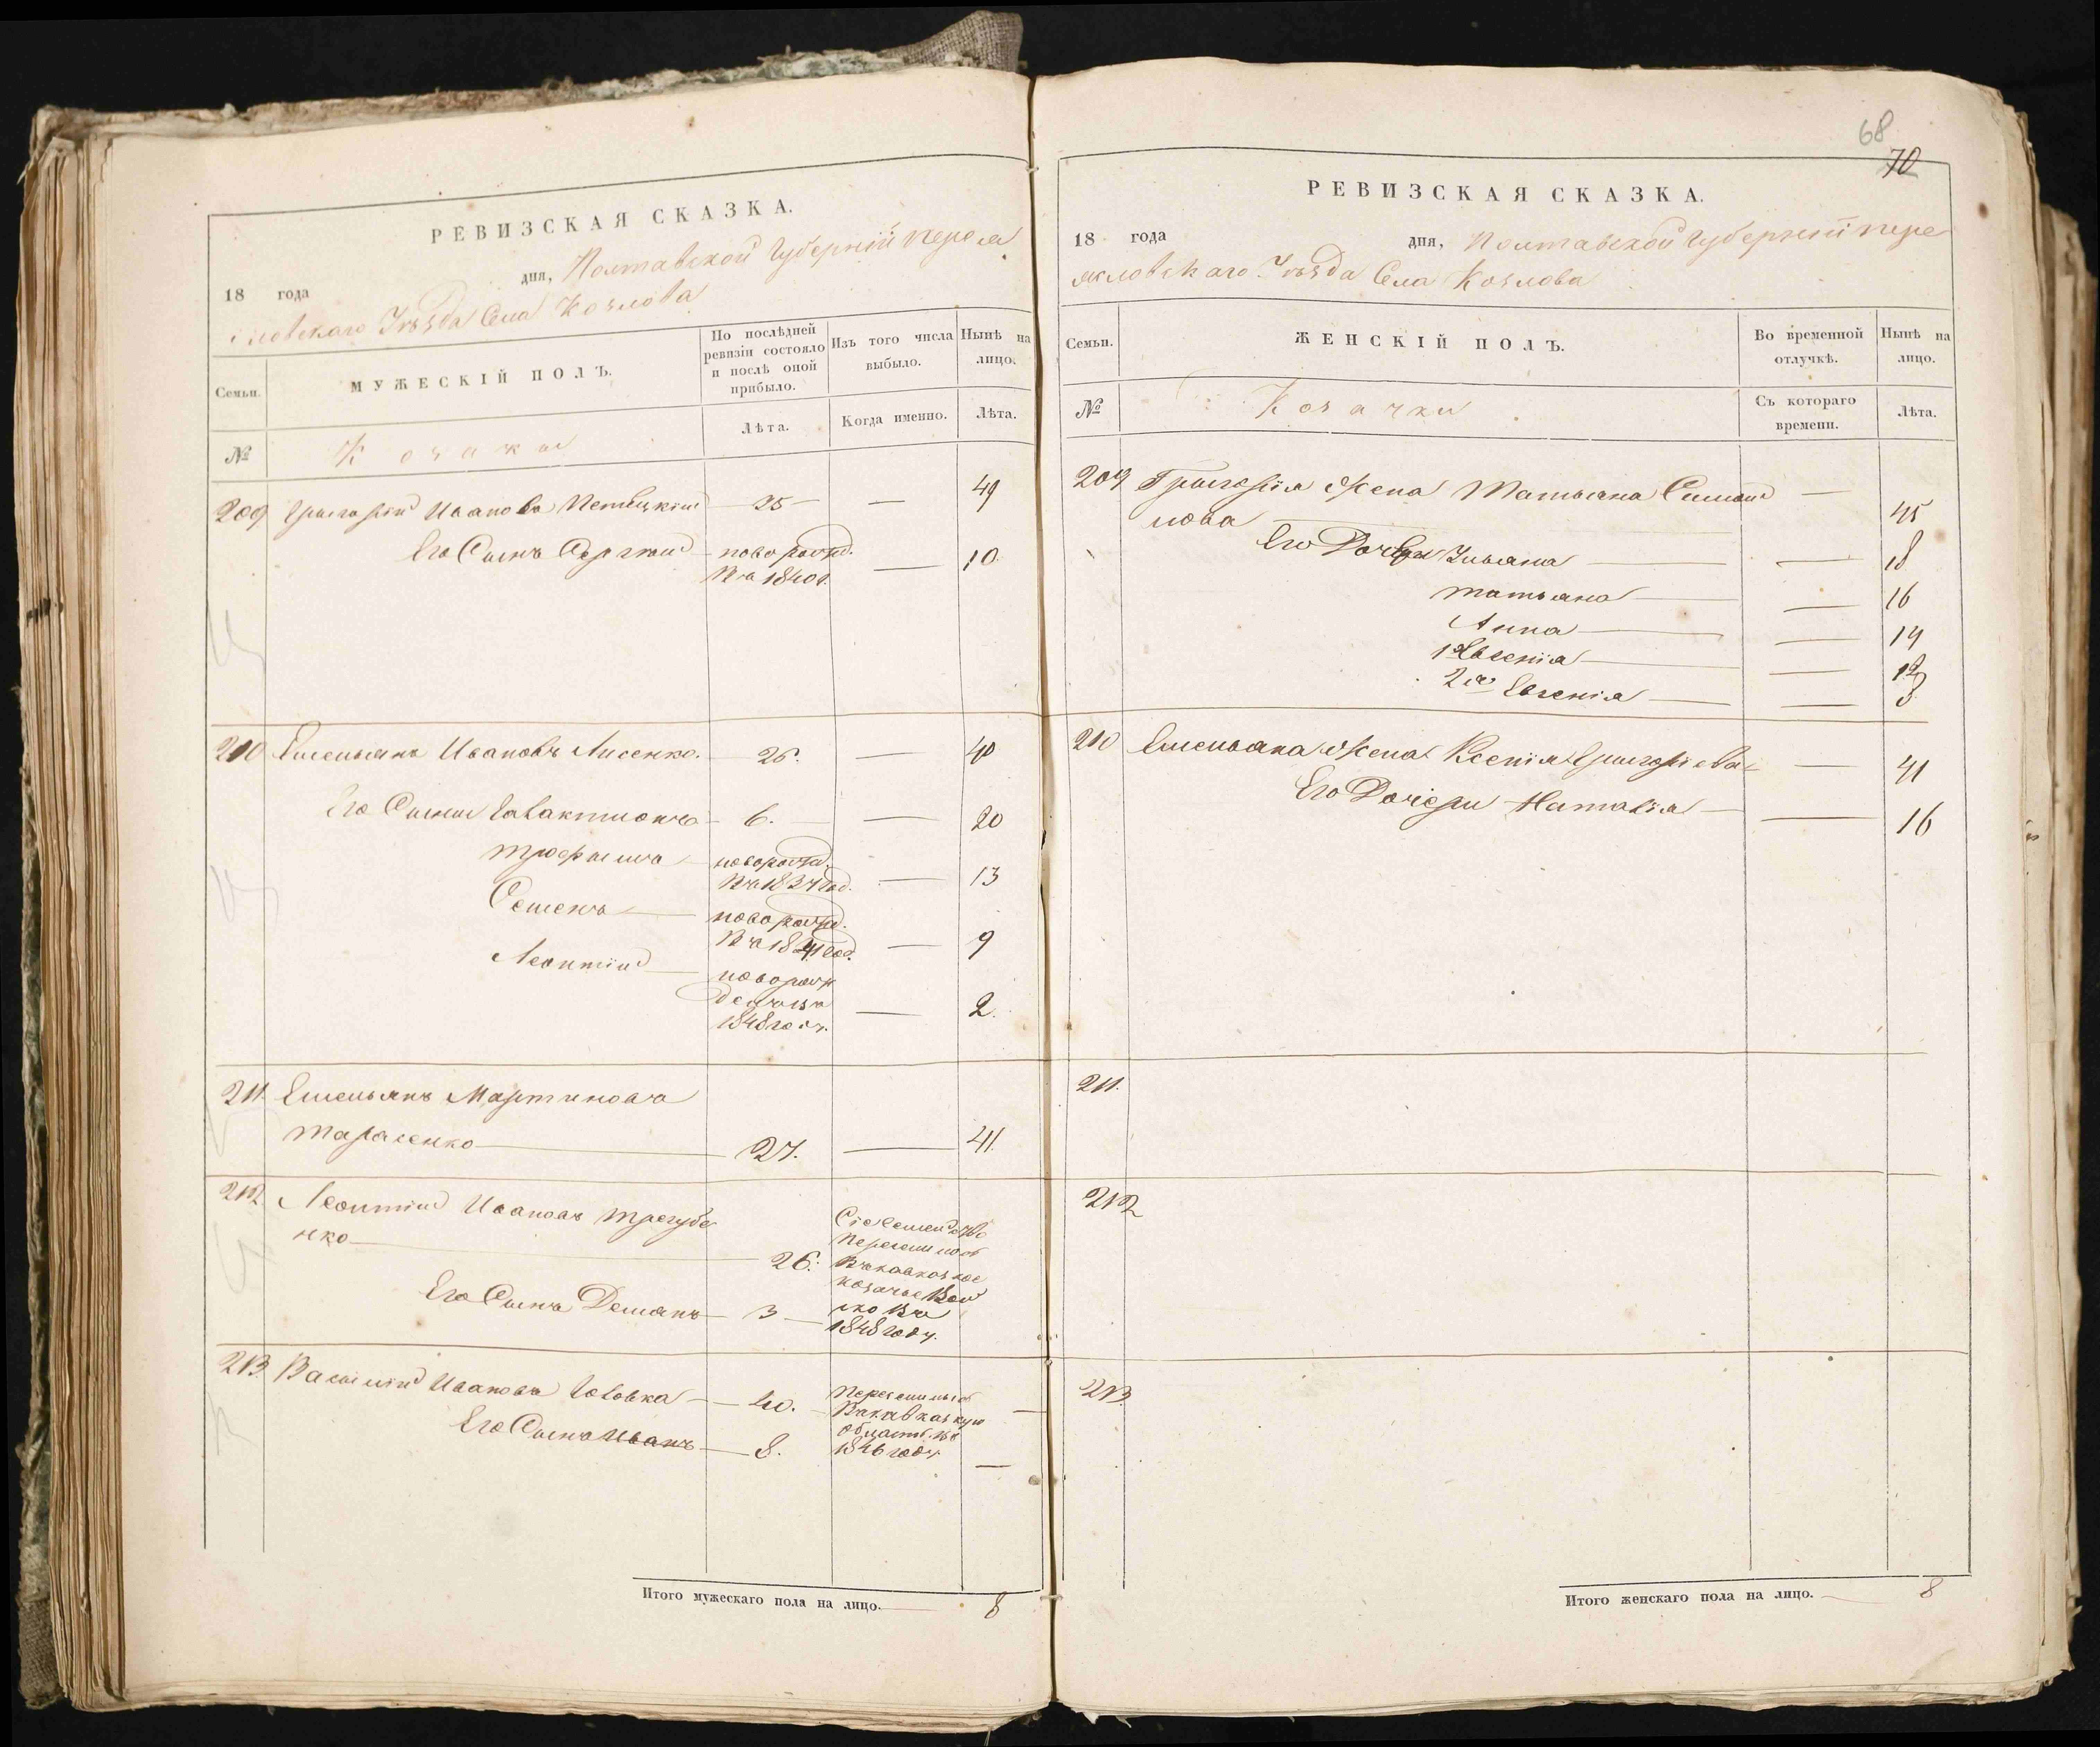 РЕВИЗСКАЯ СКАЗКА.
18 года дня, Полтавской Губерніи Переяс
ловскаго Уѣзда Села Козлова
Семьи.
МУЖЕСКІЙ ПОЛЪ.
По послѣдней ревизіи состояло и послѣ оной прибыло.
Изъ того числа выбыло.
Нынѣ на лицо.
№
Козаки
Лѣта.
Когда именно.
Лѣта.
209 Григорій Ивановъ 35 — 49
Его Сынъ Сергій новорожд. — 10.
въ 1840 г.
210 Емельянъ Ивановъ Лисенко. 26. — 40
Его Сыни Галактионъ 6. — 20
Трофимъ новорожд. — 13
въ 1837 год.
Семенъ новорожд. — 9
въ 1841 год.
Леонтій новорож
деннъ въ — 2.
1848 году.
211. Емельянъ Мартиновъ
Тарасенко 27. — 41.
212 Леонтій Ивановъ Трегубе
нко 26.
Его Сынъ Демянъ 3
Сіе Семейство
переселилось
въ кавказкое
козачье Вой
ско въ
1848 году.
213. Василій Ивановъ Головка 40. —
Его Сынъ Иванъ 8. —
Переселились
в кавказкую
область въ
1846 году.
Итого мужескаго пола на лицо. 8
68
70
РЕВИЗСКАЯ СКАЗКА.
18 года дня, Полтавской Губерніи Пере
ясловскаго Уѣзда Села Козлова
Семьи.
ЖЕНСКІЙ ПОЛЪ.
Во временной отлучкѣ.
Нынѣ на лицо.
№
Козачки
Съ котораго времени.
Лѣта.
209 Григорія Жена Татьяна Симио
нова — 45
Его Дочери Ульяна — 18
Татьяна — 16
Анна — 14
1я Евгенія — 12
2я Евгенія — 8
210 Емельяна Жена Ксенія Григоріева — 41
Его Дочери Наталія — 16
211.
212
213.
Итого женскаго пола на лицо. 8